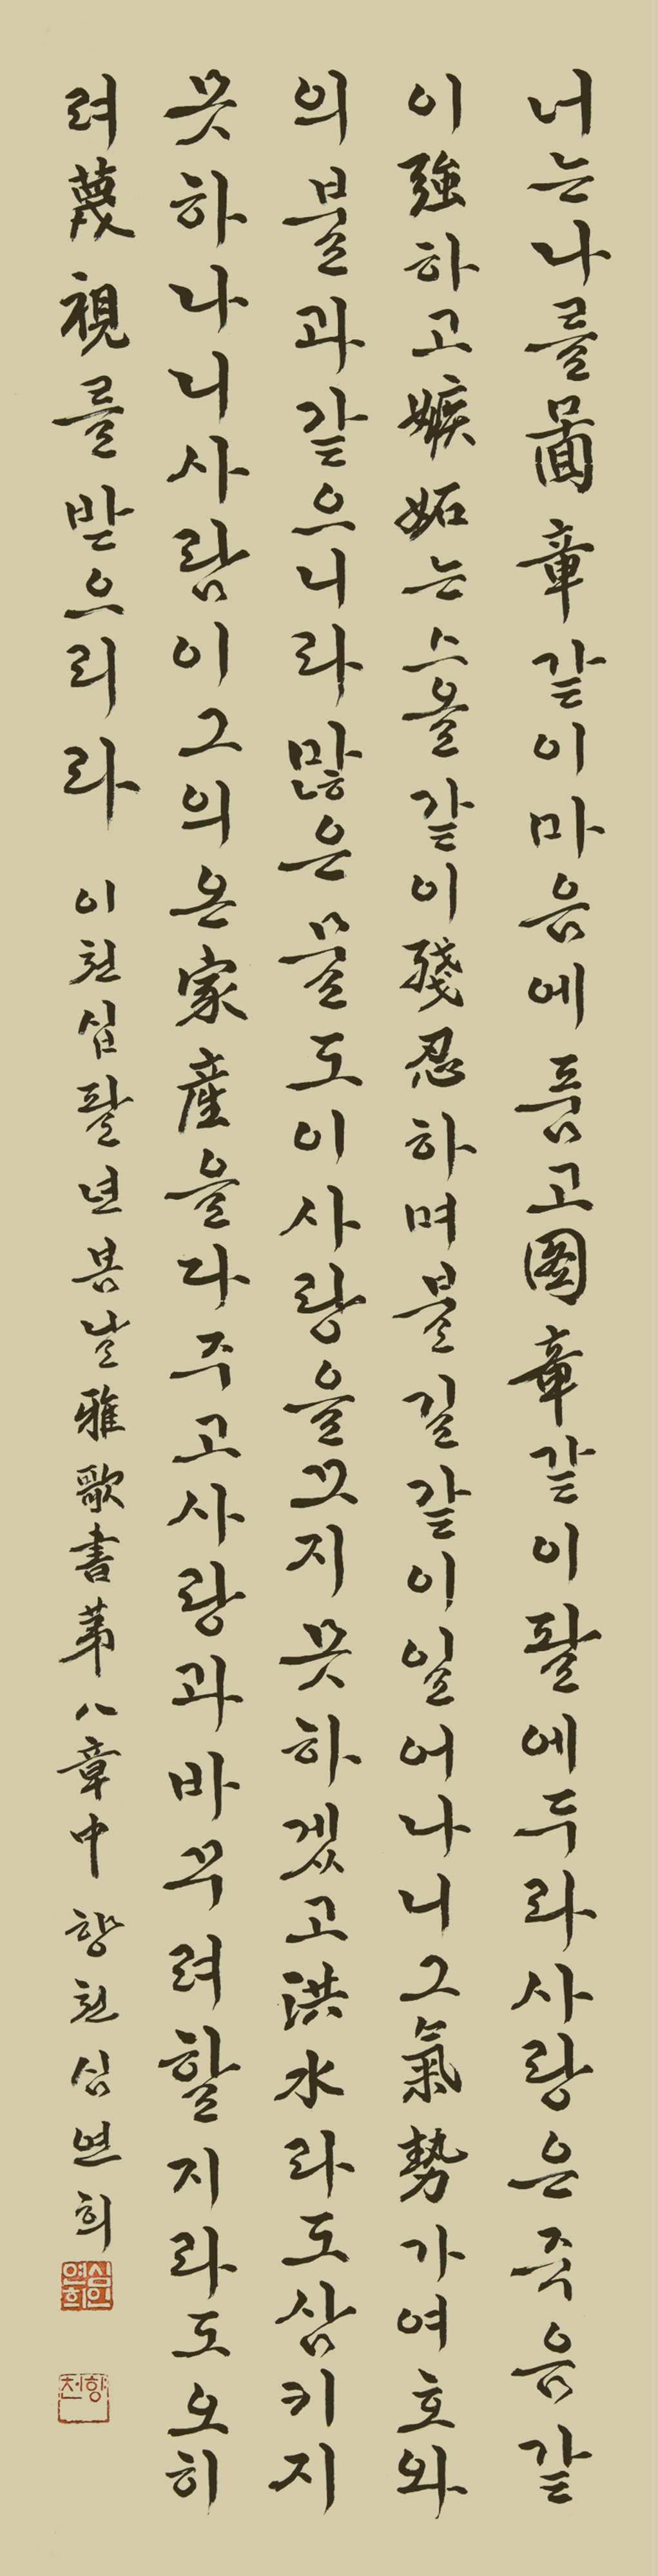 너는나를圖章같이마음에품고图章같이팔에두라사랑은죽음같
이強하고嫉妬는스올같이殘忍하며불길같이일어나니그氣勢가여호와
의불과같으니라많은물도이사랑을끄지못하겠고洪水라도삼키지
못하나니사람이그의온家産을다주고사랑과바꾸려할지라도오히
려蔑視를받으리라 이천십팔년봄날雅歌書苐八章中 향천심연희
심인연희
향천